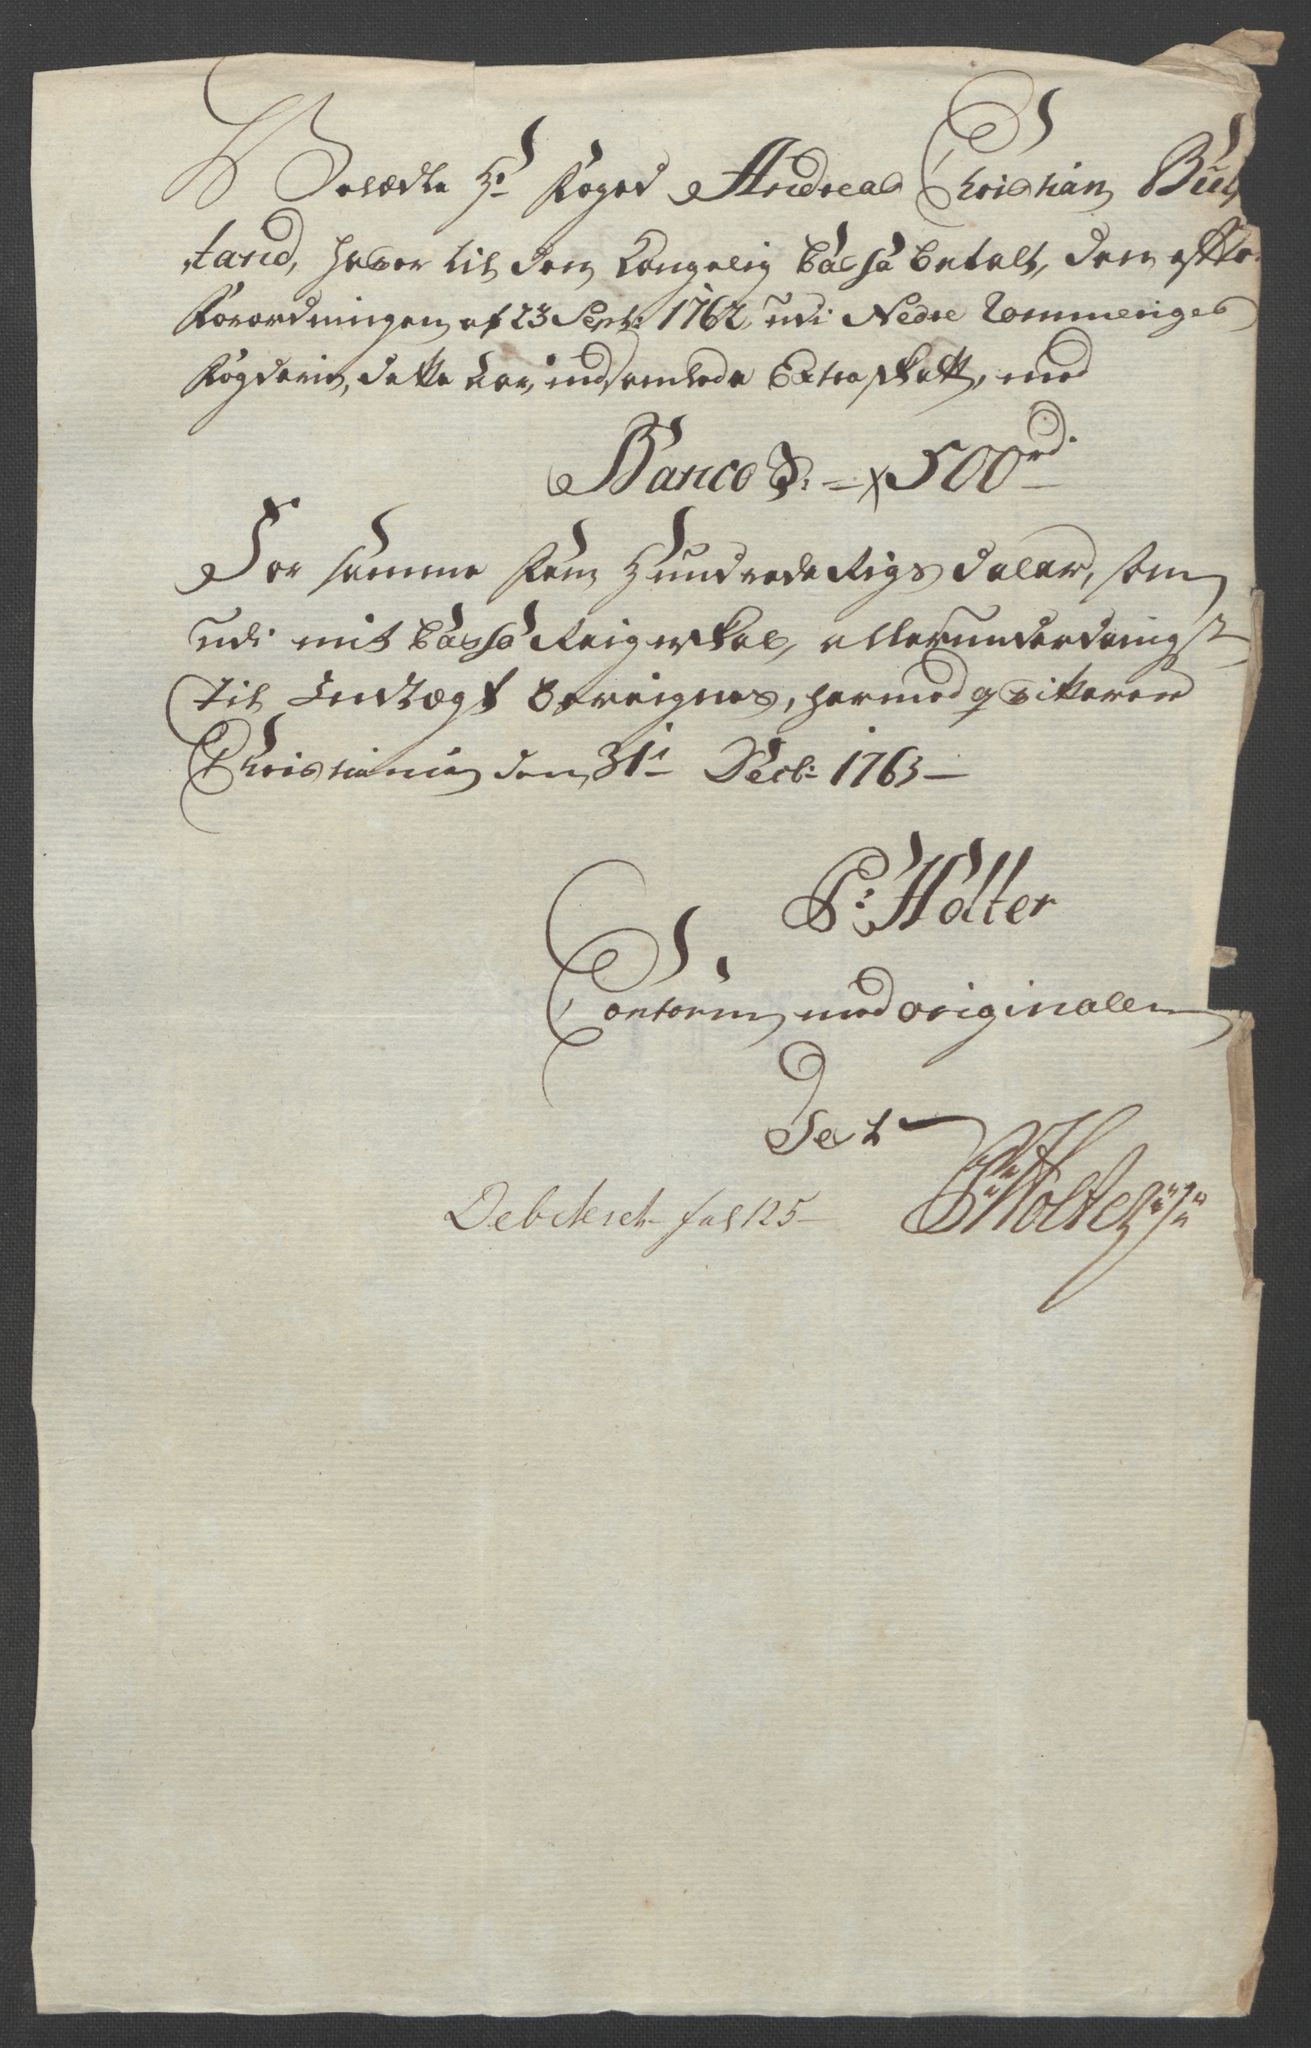 Velædle Hr Foged Andreas Christian Buf
tand, haver til den Kongelig Cassa betalt, den efter
Forordningen af 23 Septr: 1762 udi Nedre Rommeriges
Fogderie, dette Aar, indsamlede Extra skatt, med
Banco S: = x 500 rd.
For samme Fem Hundrede Rigsdaler, som
udi mit Cassa Reigenskab, allerunderdanigst
til Indtægt bereignes, hermed qvitterer
Christiania den 31te Decbr: 1763 —
P: Holter
Conform med originalen
Test
P: Holter
Debiteret fol 125 —